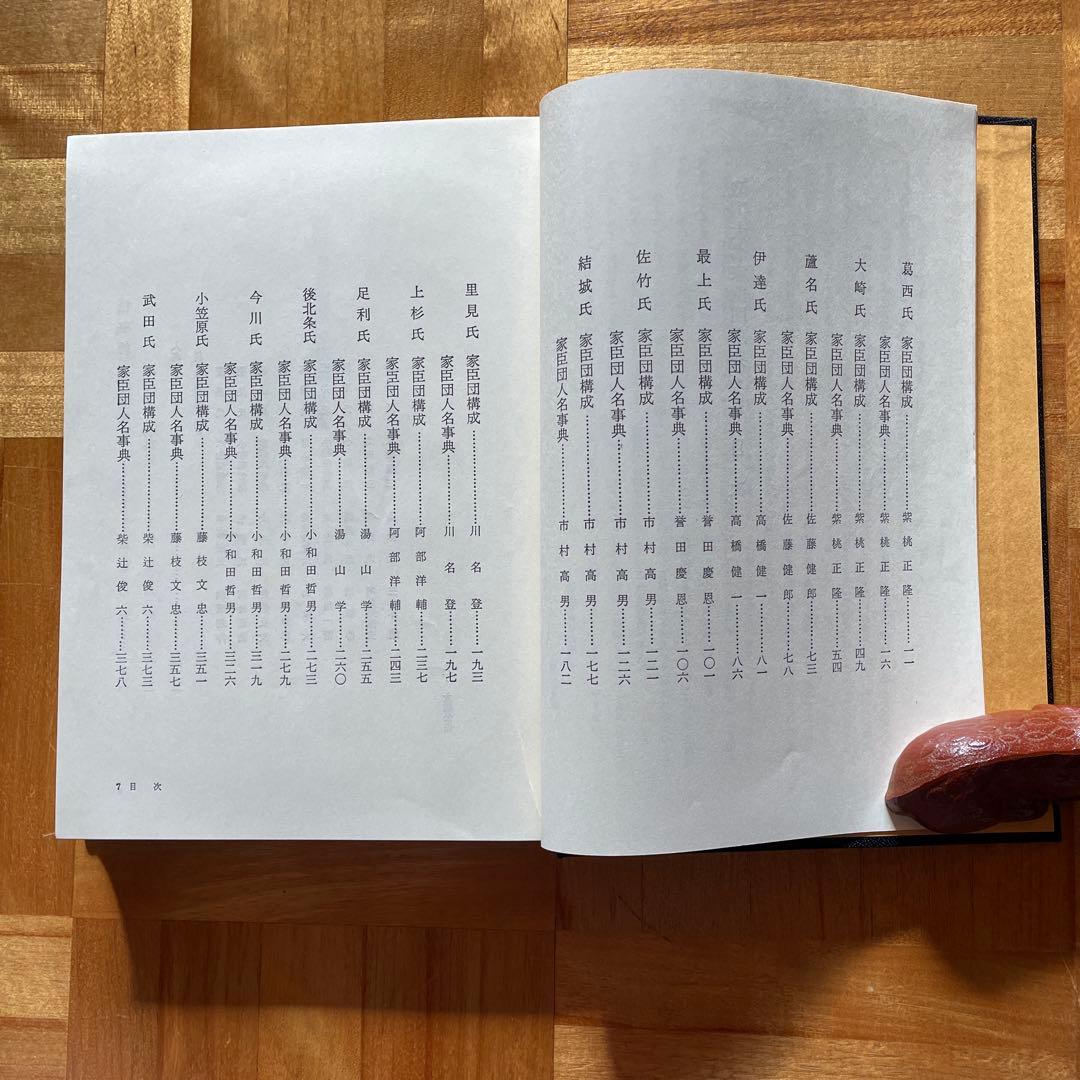 葛西氏 家臣団構成………紫桃正隆……一一
家臣団人名事典………紫桃正隆……一六
大崎氏 家臣団構成………紫桃正隆……四九
家臣団人名事典………紫桃正隆……五四
蘆名氏 家臣団構成………佐藤健郎……七三
家臣団人名事典………佐藤健郎……七八
伊達氏 家臣団構成………高橋健一……八一
家臣団人名事典………高橋健一……八六
最上氏 家臣団構成………誉田慶恩……一〇一
家臣団人名事典………誉田慶恩……一〇六
佐竹氏 家臣団構成………市村高男……一二一
家臣団人名事典………市村高男……一二六
結城氏 家臣団構成………市村高男……一七七
家臣団人名事典………市村高男……一八二
里見氏 家臣団構成………川名登……一九三
家臣団人名事典………川名登……一九七
上杉氏 家臣団構成………阿部洋輔……二三七
家臣団人名事典………阿部洋輔……二四三
足利氏 家臣団構成………湯山学……二五五
家臣団人名事典………湯山学……二六〇
後北条氏 家臣団構成………小和田哲男……二七三
家臣団人名事典………小和田哲男……二七九
今川氏 家臣団構成………小和田哲男……三一九
家臣団人名事典………小和田哲男……三二六
小笠原氏 家臣団構成………藤枝文忠……三五一
家臣団人名事典………藤枝文忠……三五七
武田氏 家臣団構成………柴辻俊六……三七三
家臣団人名事典………柴辻俊六……三七八
7 目次